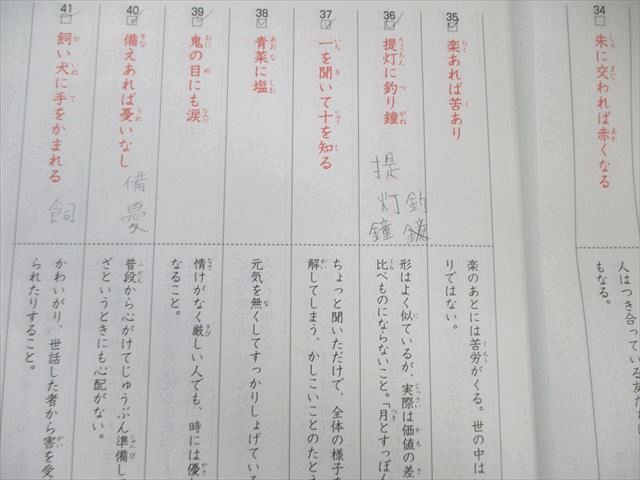 34
朱に交われば赤くなる
人はつき合っている友だ
もなる。
35
楽あれば苦あり
楽のあとには苦労がくる。世の中は
りではない。
36
提灯に釣り鐘
提
灯 釣
鐘
形はよく似ているが、実際は価値の差
比べものにならないこと。「月とすっぽん
37
一を聞いて十を知る
ちょっと聞いただけで、全体の様子を
解してしまう、かしこいことのたとう
38
青菜に塩
元気を無くしてすっかりしょげている
39
鬼の目にも涙
情けがなく厳しい人でも、時には優し
なること。
40
備えあれば憂いなし
備
憂
普段から心がけてじゅうぶん準備して
ざというときにも心配がない。
41
飼い犬に手をかまれる
飼
かわいがり、世話した者から害を受
られたりすること。